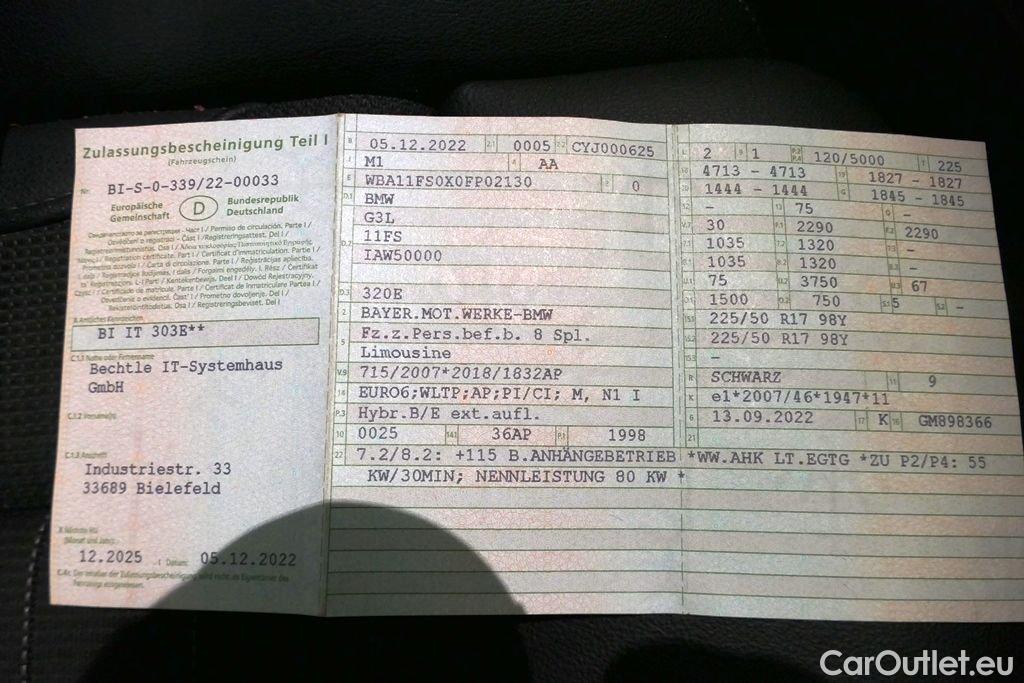 Zulassungsbescheinigung Teil I
(Fahrzeugschein)
Nr. BI-S-0-339/22-00033
Europäische Gemeinschaft
D
Bundesrepublik Deutschland
BI IT 303E**
C.1.1 Name oder Firmenname
Bechtle IT-Systemhaus
GmbH
C.1.2 Vorname(n)
C.1.3 Anschrift
Industriestr. 33
33689 Bielefeld
12.2025 Datum: 05.12.2022
B 05.12.2022 2.1 0005 2.2 CYJ000625
J M1 4 AA
E WBA11FS0X0FP02130 3 0
D.1 BMW
G3L
D.2 11FS
IAW50000
D.3 320E
2 BAYER.MOT.WERKE-BMW
5 Fz.z.Pers.bef.b. 8 Spl.
Limousine
V.9 715/2007*2018/1832AP
14 EURO6;WLTP;AP;PI/CI; M, N1 I
P.3 Hybr.B/E ext.aufl.
10 0025 14.1 36AP P.1 1998
22 7.2/8.2: +115 B.ANHÄNGEBETRIEB *WW.AHK LT.EGTG *ZU P2/P4: 55
KW/30MIN; NENNLEISTUNG 80 KW *
L 2 9 1 P.2 P.4 120/5000 T 225
18 4713 - 4713 19 1827 - 1827
20 1444 - 1444 G 1845 - 1845
12 - 13 75 Q -
V.7 30 F.1 2290 F.2 2290
7.1 1035 7.2 1320 7.3 -
8.1 1035 8.2 1320 8.3 -
U.1 75 U.2 3750 U.3 67
O.1 1500 O.2 750 S.1 5 S.2 -
15.1 225/50 R17 98Y
15.2 225/50 R17 98Y
15.3 -
R SCHWARZ 11 9
K e1*2007/46*1947*11
6 13.09.2022 17 K 16 GM898366
21
CarOutlet.eu